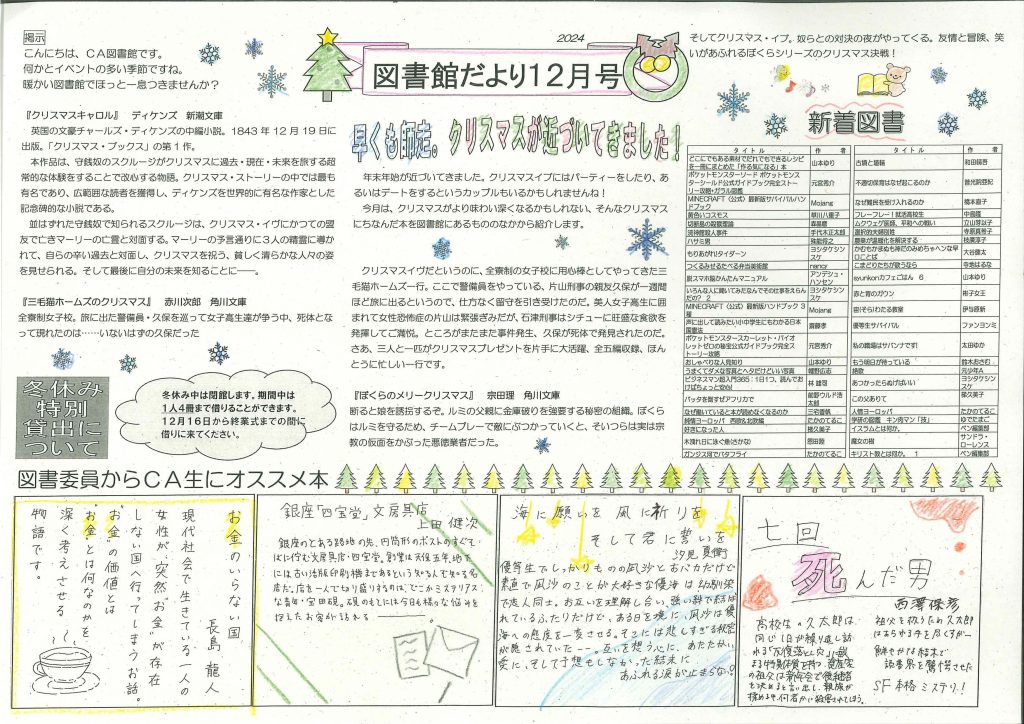 掲示
こんにちは、CA図書館です。
何かとイベントの多い季節ですね。
暖かい図書館でほっと一息つきませんか？
2024
図書館だより12月号
そしてクリスマス・イブ。奴らとの対決の夜がやってくる。友情と冒険、笑
いがあふれるぼくらシリーズのクリスマス決戦！
『クリスマスキャロル』　ディケンズ　新潮文庫
英国の文豪チャールズ・ディケンズの中編小説。1843年12月19日に
出版。「クリスマス・ブックス」の第1作。
本作品は、守銭奴のスクルージがクリスマスに過去・現在・未来を旅する超
常的な体験をすることで改心する物語。クリスマス・ストーリーの中では最も
有名であり、広範囲な読者を獲得し、ディケンズを世界的に有名な作家とした
記念碑的な小説である。
並はずれた守銭奴で知られるスクルージは、クリスマス・イヴにかつての盟
友で亡きマーリーの亡霊と対面する。マーリーの予言通りに3人の精霊に導か
れて、自らの辛い過去と対面し、クリスマスを祝う、貧しく清らかな人々の姿
を見せられる。そして最後に自分の未来を知ることに――。
『三毛猫ホームズのクリスマス』　赤川次郎　角川文庫
全寮制女子校。旅に出た警備員・久保を巡って女子高生達が争う中、死体とな
って現れたのは……いないはずの久保だった
早くも師走。クリスマスが近づいてきました！
年末年始が近づいてきました。クリスマスイブにはパーティーをしたり、あ
るいはデートをするというカップルもいるかもしれませんね！
今月は、クリスマスがより味わい深くなるかもしれない、そんなクリスマス
にちなんだ本を図書館にあるもののなかから紹介します。
クリスマスイヴだというのに、全寮制の女子校に用心棒としてやってきた三
毛猫ホームズ一行。ここで警備員をやっている、片山刑事の親友久保が一週間
ほど旅に出るというので、仕方なく留守を引き受けたのだ。美人女子高生に囲
まれて女性恐怖症の片山は緊張ぎみだが、石津刑事はシチューに旺盛な食欲を
発揮してご満悦。ところがまたまた事件発生、久保が死体で発見されたのだ。
さあ、三人と一匹がクリスマスプレゼントを片手に大活躍、全五編収録、ほん
とうに忙しい一行です。
『ぼくらのメリークリスマス』　宗田理　角川文庫
断ると娘を誘拐するぞ。ルミの父親に金庫破りを強要する秘密の組織。ぼくら
はルミを守るため、チームプレーで敵にぶつかっていくと、そいつらは実は宗
教の仮面をかぶった悪徳業者だった。
冬休み
特別
貸出に
ついて
冬休み中は閉館します。期間中は
1人4冊まで借りることができます。
12月16日から終業式までの間に
借りに来てください。
新着図書
作　者
作　者
どこにでもある素材でだれでもできるレシピを一冊にまとめた「作る気になる」本　山本ゆり
古墳と埴輪　和田晴吾
ポケットモンスターソード ポケットモンスターシールド公式ガイドブック完全ストーリー攻略+ガラル図鑑　元宮秀介
不適切保育はなぜ起こるのか　普光院亜紀
MINECRAFT（公式）最新版サバイバルハンドブック　Mojang
なぜ難民を受け入れるのか　橋本直子
黄色いコスモス
フレーフレー！就活高校生　中島隆
ムクウェゲ医師、平和への戦い　立山芽以子
ハサミ男　殊能将之
もりあがれ!タイダーン　ヨシタケシンスケ
大谷健太
つくるみせるたべる弁当美術館　nancy
こまどりたちが歌うなら　寺地はるな
脱スマホ脳かんたんマニュアル　アンデシュ・ハンセン
syunkonカフェごはん　6　山本ゆり
いろんな人に聞いてみたなんでその仕事をえらんだの？ 2　ヨシタケシンスケ
赤と青のガウン　彬子女王
MINECRAFT（公式）最新版ハンドブック 3種　Mojang
宙(そら)わたる教室　伊与原新
声に出して読みたい小中学生にもわかる日本国憲法　齋藤孝
優等生サバイバル　ファンヨンミ
ポケットモンスタースカーレット・バイオレットゼロの秘宝公式ガイドブック完全ストーリー攻略　元宮秀介
私の職場はサバンナです!　太田ゆか
おしゃべりな人見知り　山本ゆり
もう明日が待っている　鈴木おさむ
うまくてダメな写真とヘタだけどいい写真　幡野広志
絶歌　元少年A
ビジネスマン超入門365：1日1つ、読んでおけばちょっと安心!　林雄司
あつかったらぬげばいい　ヨシタケシンスケ
バッタを倒すぜアフリカで　前野ウルド浩太郎
この父ありて　梯久美子
なぜ働いていると本が読めなくなるのか　三宅香帆
人情ヨーロッパ　たかのてるこ
純情ヨーロッパ　西欧&北欧編　たかのてるこ
学研の図鑑 キン肉マン「技」　ゆでたまご
好きになった人　梯久美子
イスラムとは何か。　ペン編集部
木洩れ日に泳ぐ魚(さかな)　恩田陸
魔女の樹　サンドラ・ローレンス
ガンジス河でバタフライ　たかのてるこ
キリスト教とは何か。 1　ペン編集部
図書委員からCA生にオススメ本
お金のいらない国
長島龍人
現代社会で生きている一人の
女性が、突然“お金”が存在
しない国へ行ってしまうお話。
“お金”の価値とは
“お金”とは何なのかを
深く考えさせる
物語です。
銀座「四宝堂」文房具店
上田健次
銀座のとある路地の先、円筒形のポストのすぐそ
ばに佇む文房具店・四宝堂。創業は天保五年、地下
には古い活版印刷機まであるという知る人ぞ知る名
店だ。店を一人で切り盛りするのは、どこかミステリアス
な青年・宝田硯。硯のもとには今日も様々な悩みを
抱えたお客が訪れる――
海に願いを 風に祈りを
そして君に誓いを
汐見夏衛
優等生でしっかりものの凪沙とおバカだけど
素直で凪沙のことが大好きな優海は幼馴染
で恋人同士。お互いを理解し合い、強い絆で結ば
れているふたりだけど、ある日を境に、凪沙は優
海への態度を一変させる。そこには悲しすぎる秘密
が隠されていた---。互いを想う心に、あたたかい
愛に、そして予想もしなかった結末に
あふれる涙が止まらない。
七回
死んだ男
西澤保彦
高校生の久太郎は、
同じ1日が繰り返し訪
れる「反復落とし穴」に嵌
まる特異体質を持つ。資産家
の祖父は新年会で後継者
を決めると言い出し、親族が
揉める中、何者かに殺害されてしまう。
祖父を救うため久太郎
はあらゆる手を尽くすが―
鮮やかな結末で
読書界を驚愕させた
SF本格ミステリ！